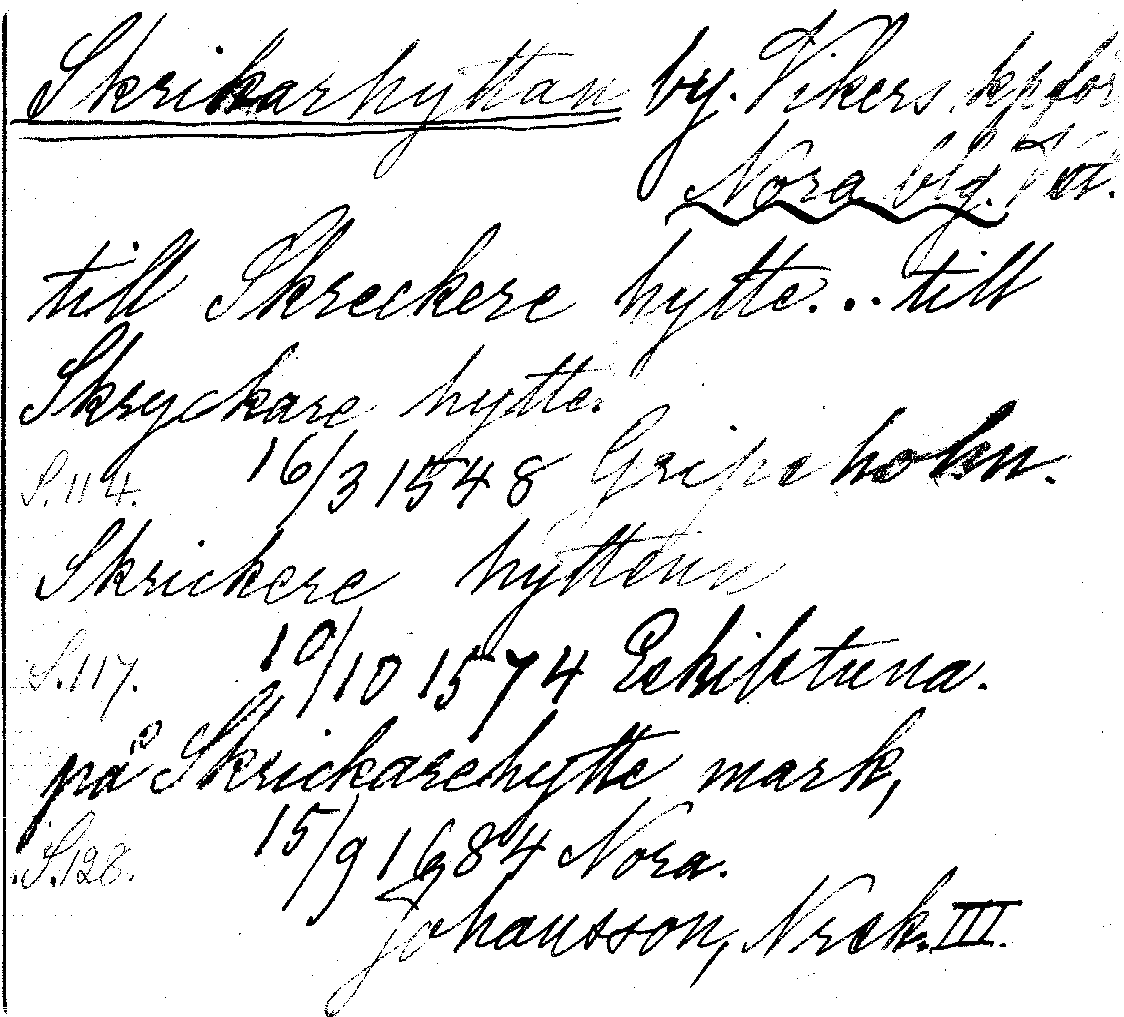 Skrikarhyttan by. Vikers kpför
Nora blg. Vstm.
till Skreckere hytte... till
Skryckare hytte.
S. 114. 16/3 1548 Gripsholm.
Skrickere hyttenn
S. 117. 10/10 1574 Eskilstuna.
på Skrickarehytte mark,
S. 128. 15/9 1684 Nora.
Johansson, Nrck. III.